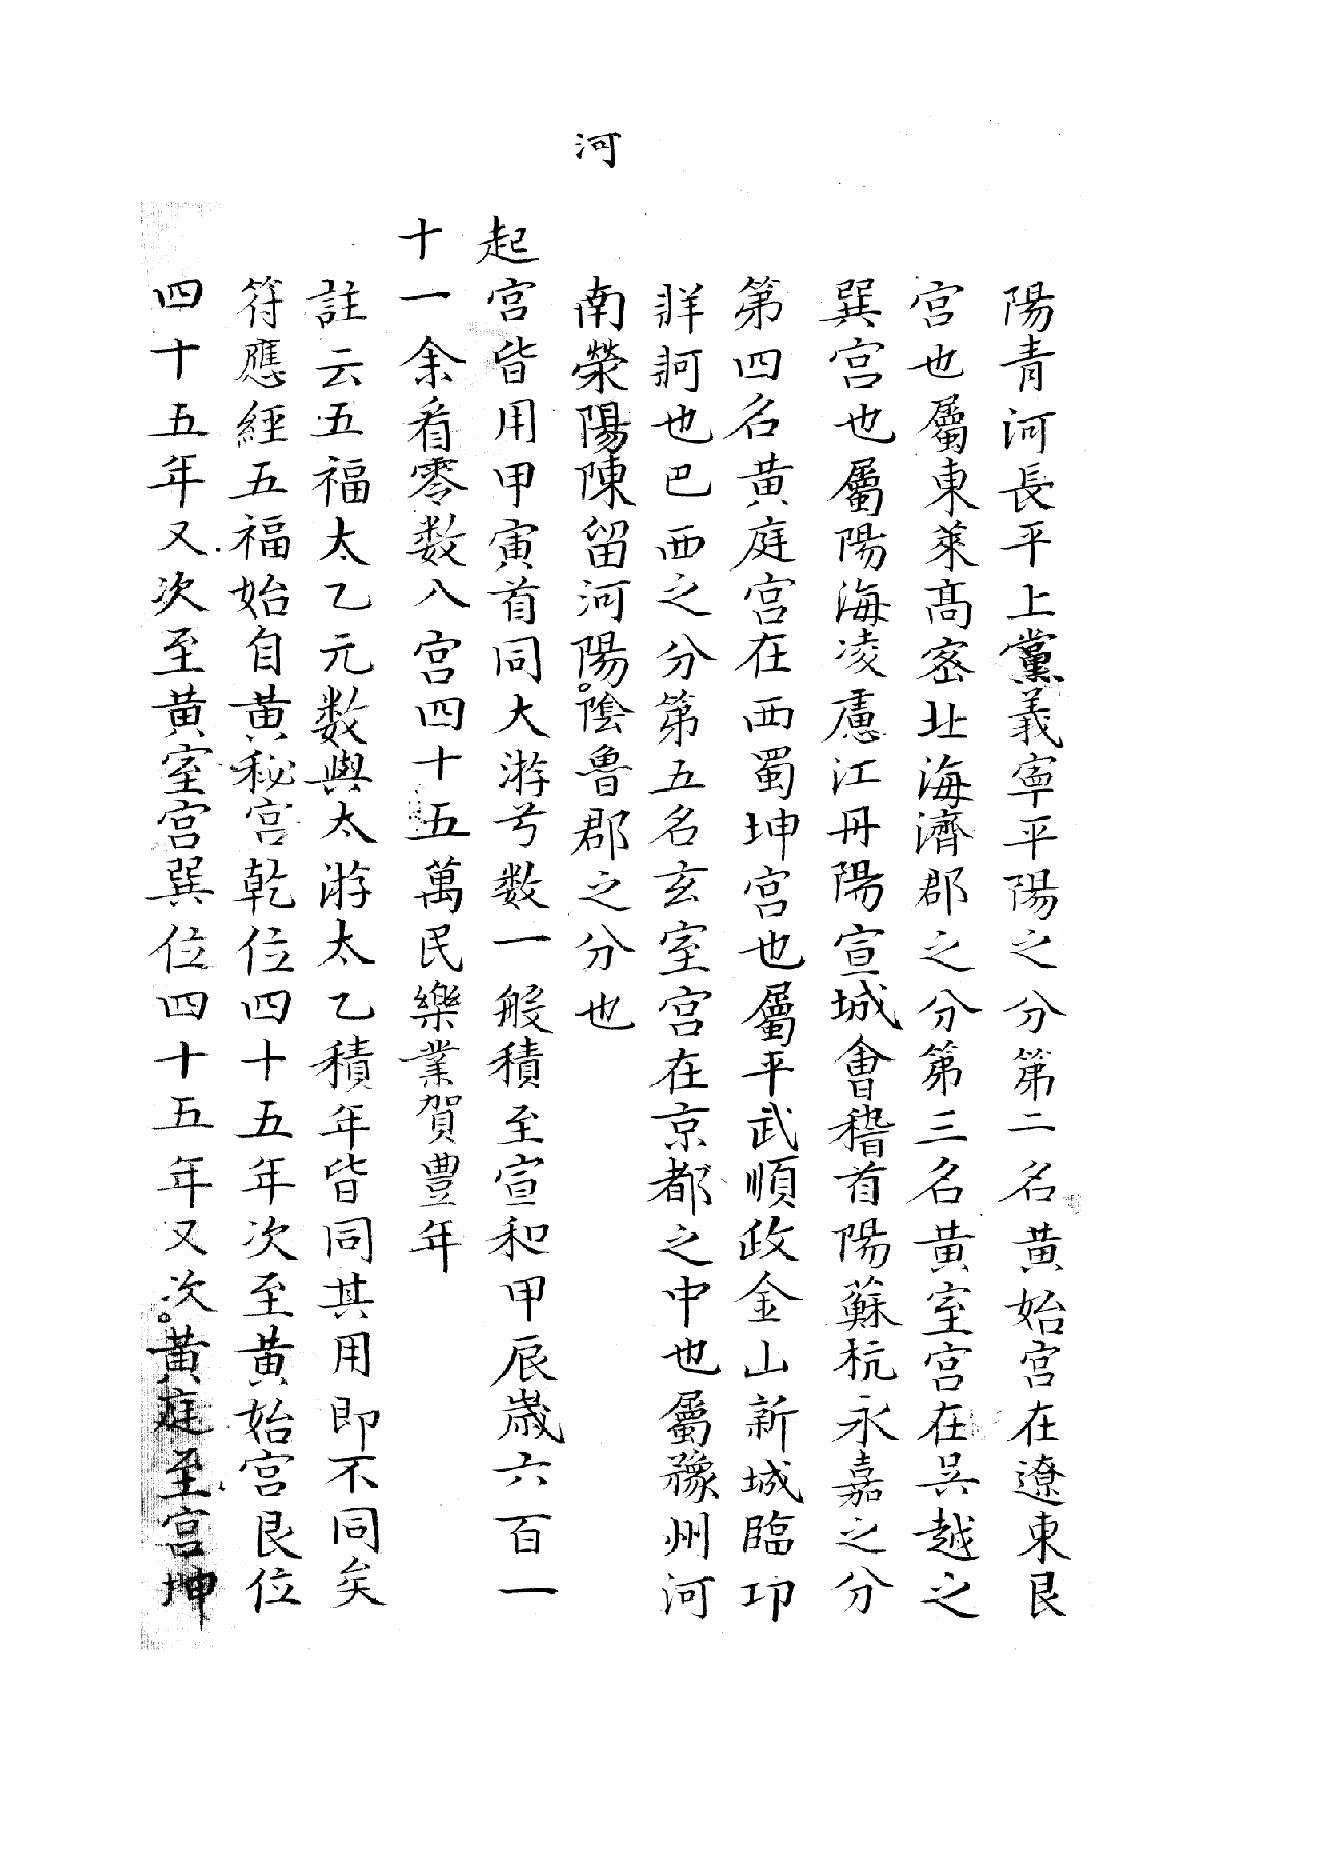 河
陽青河長平上黨義寧平陽之分第二名黄始宮在遼東艮
宮也屬東萊髙宻北海濟郡之分第三名黄室宮在呉越之
巽宮也屬陽海凌慮江丹陽宣城會稽首陽蘇杭永嘉之分
第四名黄庭宮在西蜀坤宮也屬平武順政金山新城臨邛
牂牁也巴西之分第五名玄室宮在京都之中也屬豫州河
南榮陽陳留河陽陰魯郡之分也
起宮皆用甲寅首同大游兮数一般積至宣和甲辰歳六百一
十一余看零数八宮四十五萬民樂業賀豊年
註云五福太乙元数與太游太乙積年皆同其用即不同矣
符應經五福始自黄秘宮乾位四十五年次至黄始宮艮位
四十五年又次至黄室宮巽位四十五年又次黄庭至宮坤